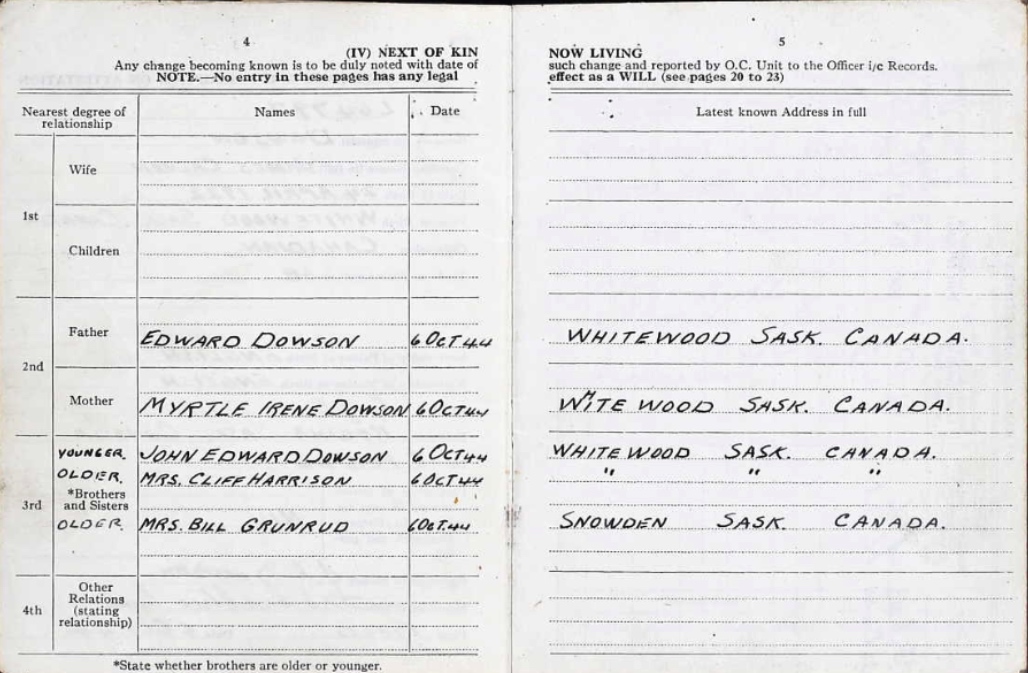 4
(IV) NEXT OF KIN
Any change becoming known is to be duly noted with date of
NOTE.—No entry in these pages has any legal
Nearest degree of relationship
Names
Date
1st
Wife
Children
2nd
Father
EDWARD DOWSON 6 OCT 44
Mother
MYRTLE IRENE DOWSON 6 OCT 44
3rd
YOUNGER. JOHN EDWARD DOWSON 6 OCT 44
OLDER. MRS. CLIFF HARRISON 6 OCT 44
*Brothers
and Sisters
OLDER. MRS. BILL GRUNRUD 6 OCT. 44
4th
Other
Relations
(stating
relationship)
*State whether brothers are older or younger.
5
NOW LIVING
such change and reported by O.C. Unit to the Officer i/c Records.
effect as a WILL (see pages 20 to 23)
Latest known Address in full
WHITEWOOD SASK. CANADA.
WHITE WOOD SASK. CANADA.
WHITE WOOD SASK. CANADA.
" " "
SNOWDEN SASK. CANADA.